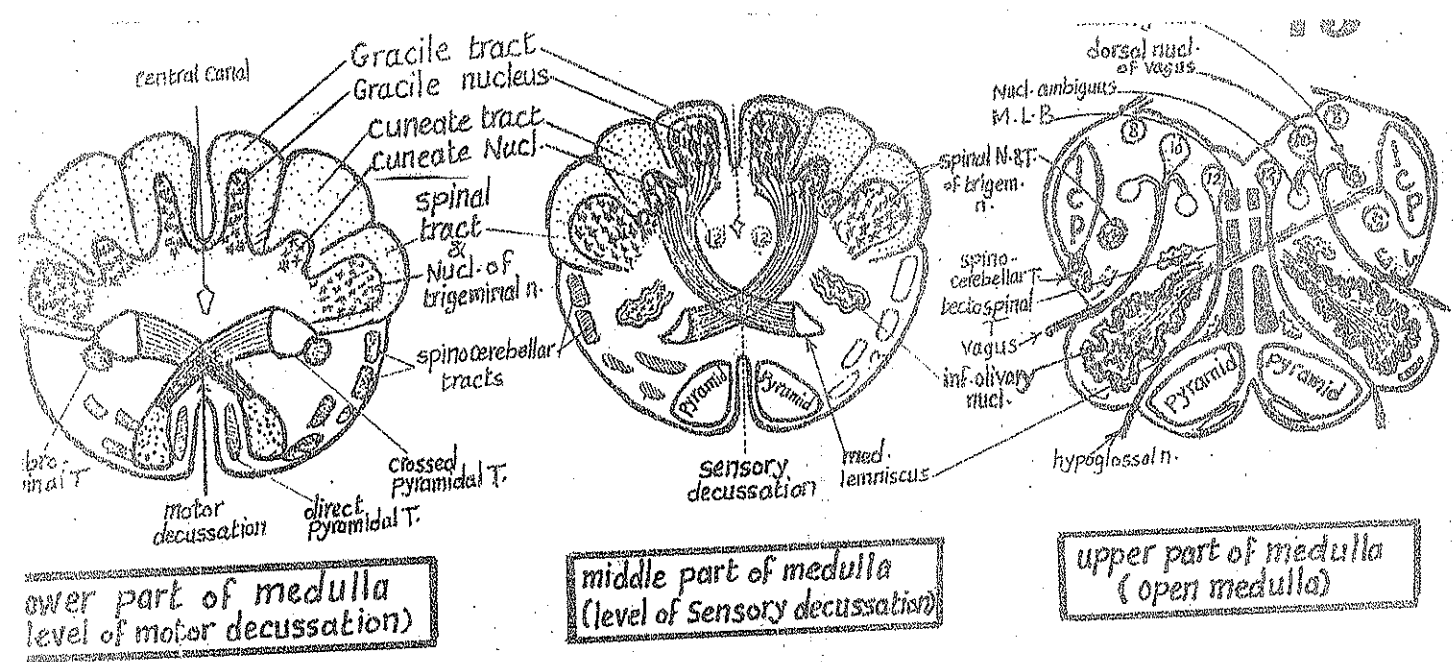 central canal
Gracile tract
Gracile nucleus
cuneate tract
cuneate Nucl.
spinal
tract
&
Nucl. of
trigeminal n.
spinocerebellar
tracts
crossed
pyramidal T.
direct
pyramidal T.
motor
decussation
ower part of medulla
level of motor decussation)
12
12
Pyramid
Pyramid
sensory
decussation
med.
lemniscus
middle part of medulla
(level of Sensory decussation)
dorsal nucl.
of vagus
Nucl. ambiguus
M.L.B
spinal N.&T.
of trigem.
n.
spino-
cerebellar T.
tectospinal
T
vagus
inf. olivary
nucl.
hypoglossal n.
8
10
12
8
10
I C P
I C P
Pyramid
Pyramid
upper part of medulla
(open medulla)